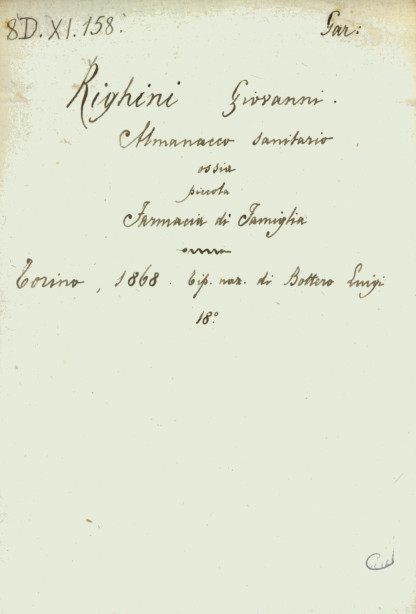 8D. XI. 158. Gar:
Righini Giovanni.
Almanacco sanitario
ossia
piccola
Farmacia di Famiglia
Torino, 1868. Tip. naz. di Bottero Luigi
18°